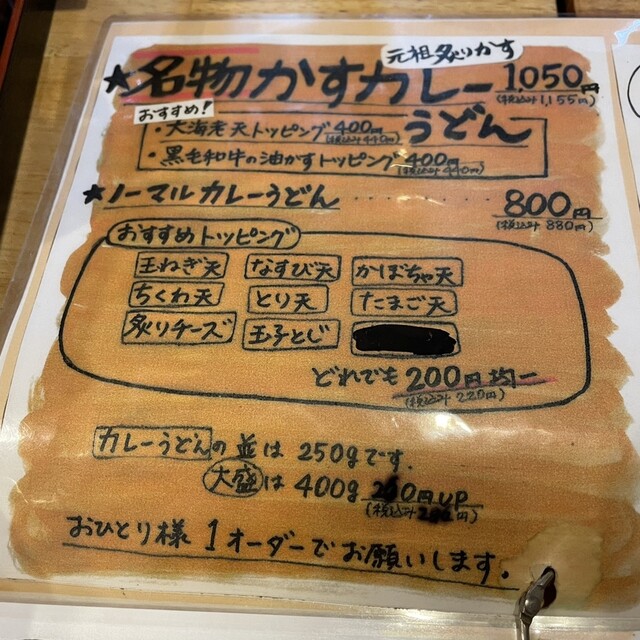 元祖炙りかす
★名物かすカレーうどん 1,050円
(税込み1,155円)
おすすめ!
・大海老天トッピング400円
(税込み440円)
・黒毛和牛の油かすトッピング400円
(税込み440円)
★ノーマルカレーうどん ・・・・・・・ 800円
(税込み880円)
おすすめトッピング
玉ねぎ天 なすび天 かぼちゃ天
ちくわ天 とり天 たまご天
炙りチーズ 玉子とじ
どれでも200円均一
(税込み220円)
カレーうどんの並は250gです.
大盛は400g 円UP
(税込み 円)
おひとり様1オーダーでお願いします.